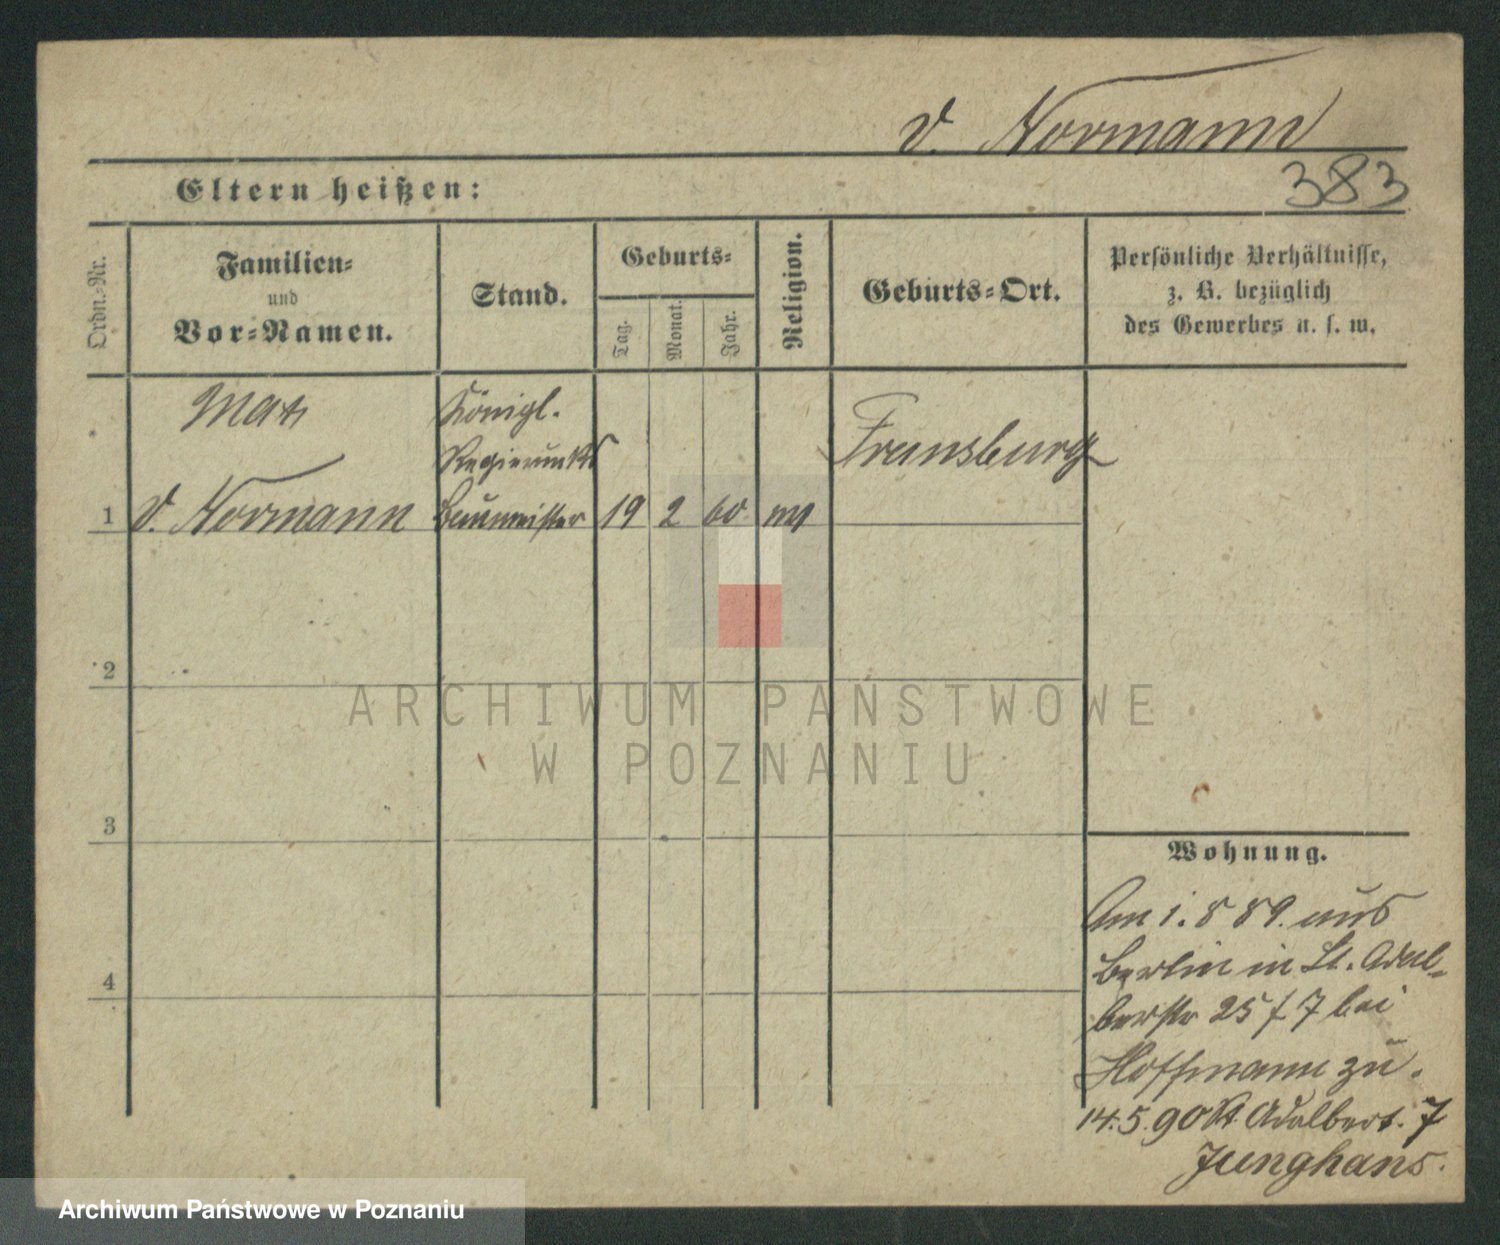 v. Normann
Eltern heißen:
383
Ordn.-Nr.
Familien-
und
Vor-Namen.
Stand.
Geburts-
Tag.
Monat.
Jahr.
Religion.
Geburts-Ort.
Persönliche Verhältnisse,
z. B. bezüglich
des Gewerbes u. s. w.
Max
Königl.
Franzburg
1 v. Normann Baumeister 19 2 60
2
ARCHIWUM PAŃSTWOWE
W POZNANIU
3
Wohnung.
4
Am 1. 8 89. aus
Berlin in St. Adal-
bertstr 25 f 7 bei
Hoffmann zu.
14.5.90 St. Adalbert. 7
Junghans.
Archiwum Państwowe w Poznaniu